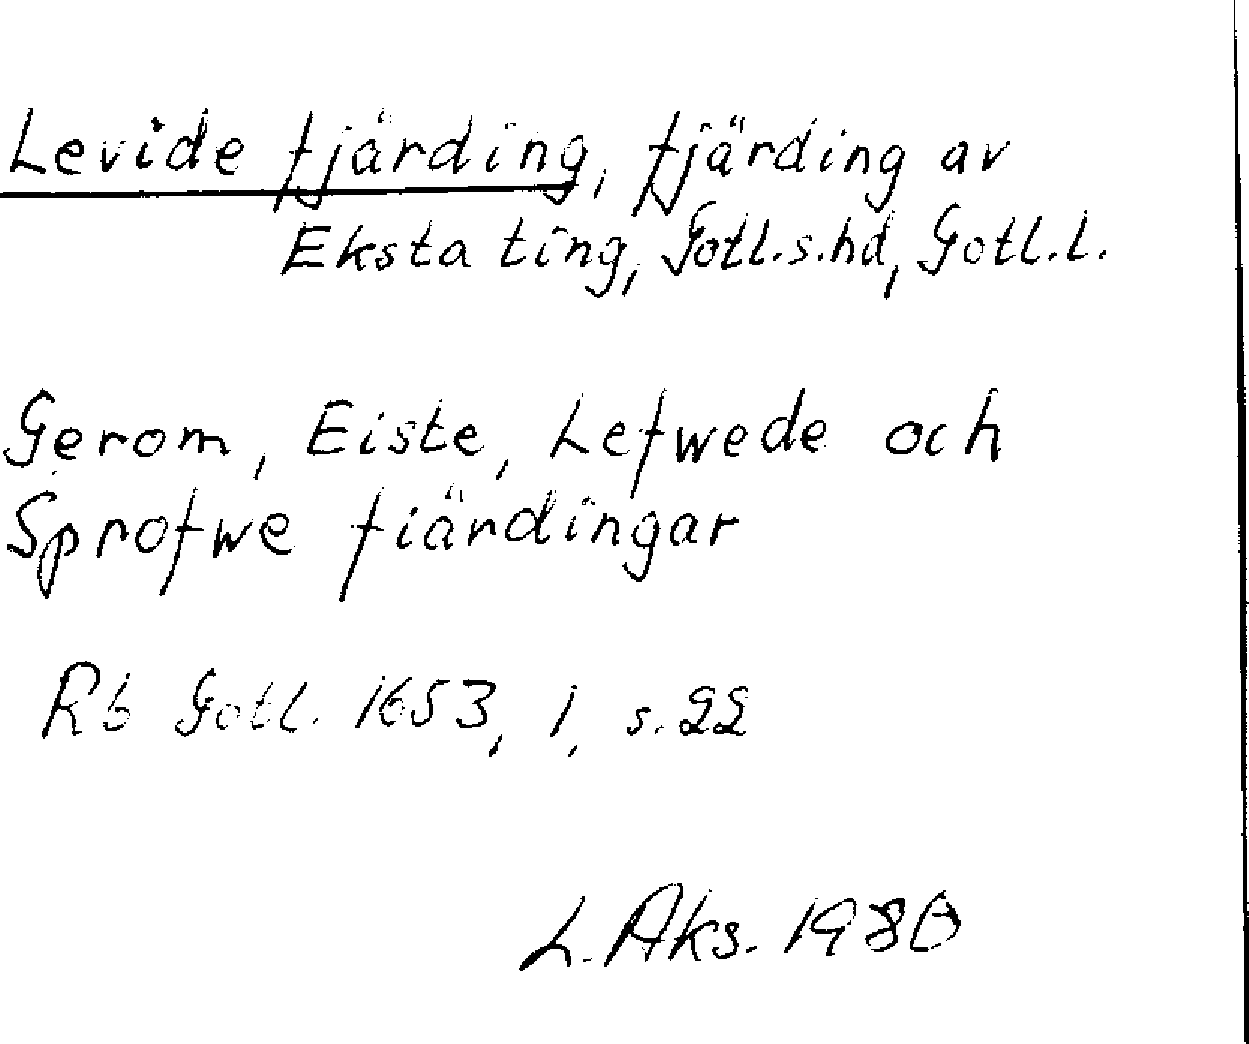 Levide fjärding, fjärding av
Eksta ting, Gotl.s.hd, Gotl.l.
Gerom, Eiste, Lefwede och
Sprofwe fiärdingar
Rb Gotl. 1653, 1, s.22
L. Aks. 1980